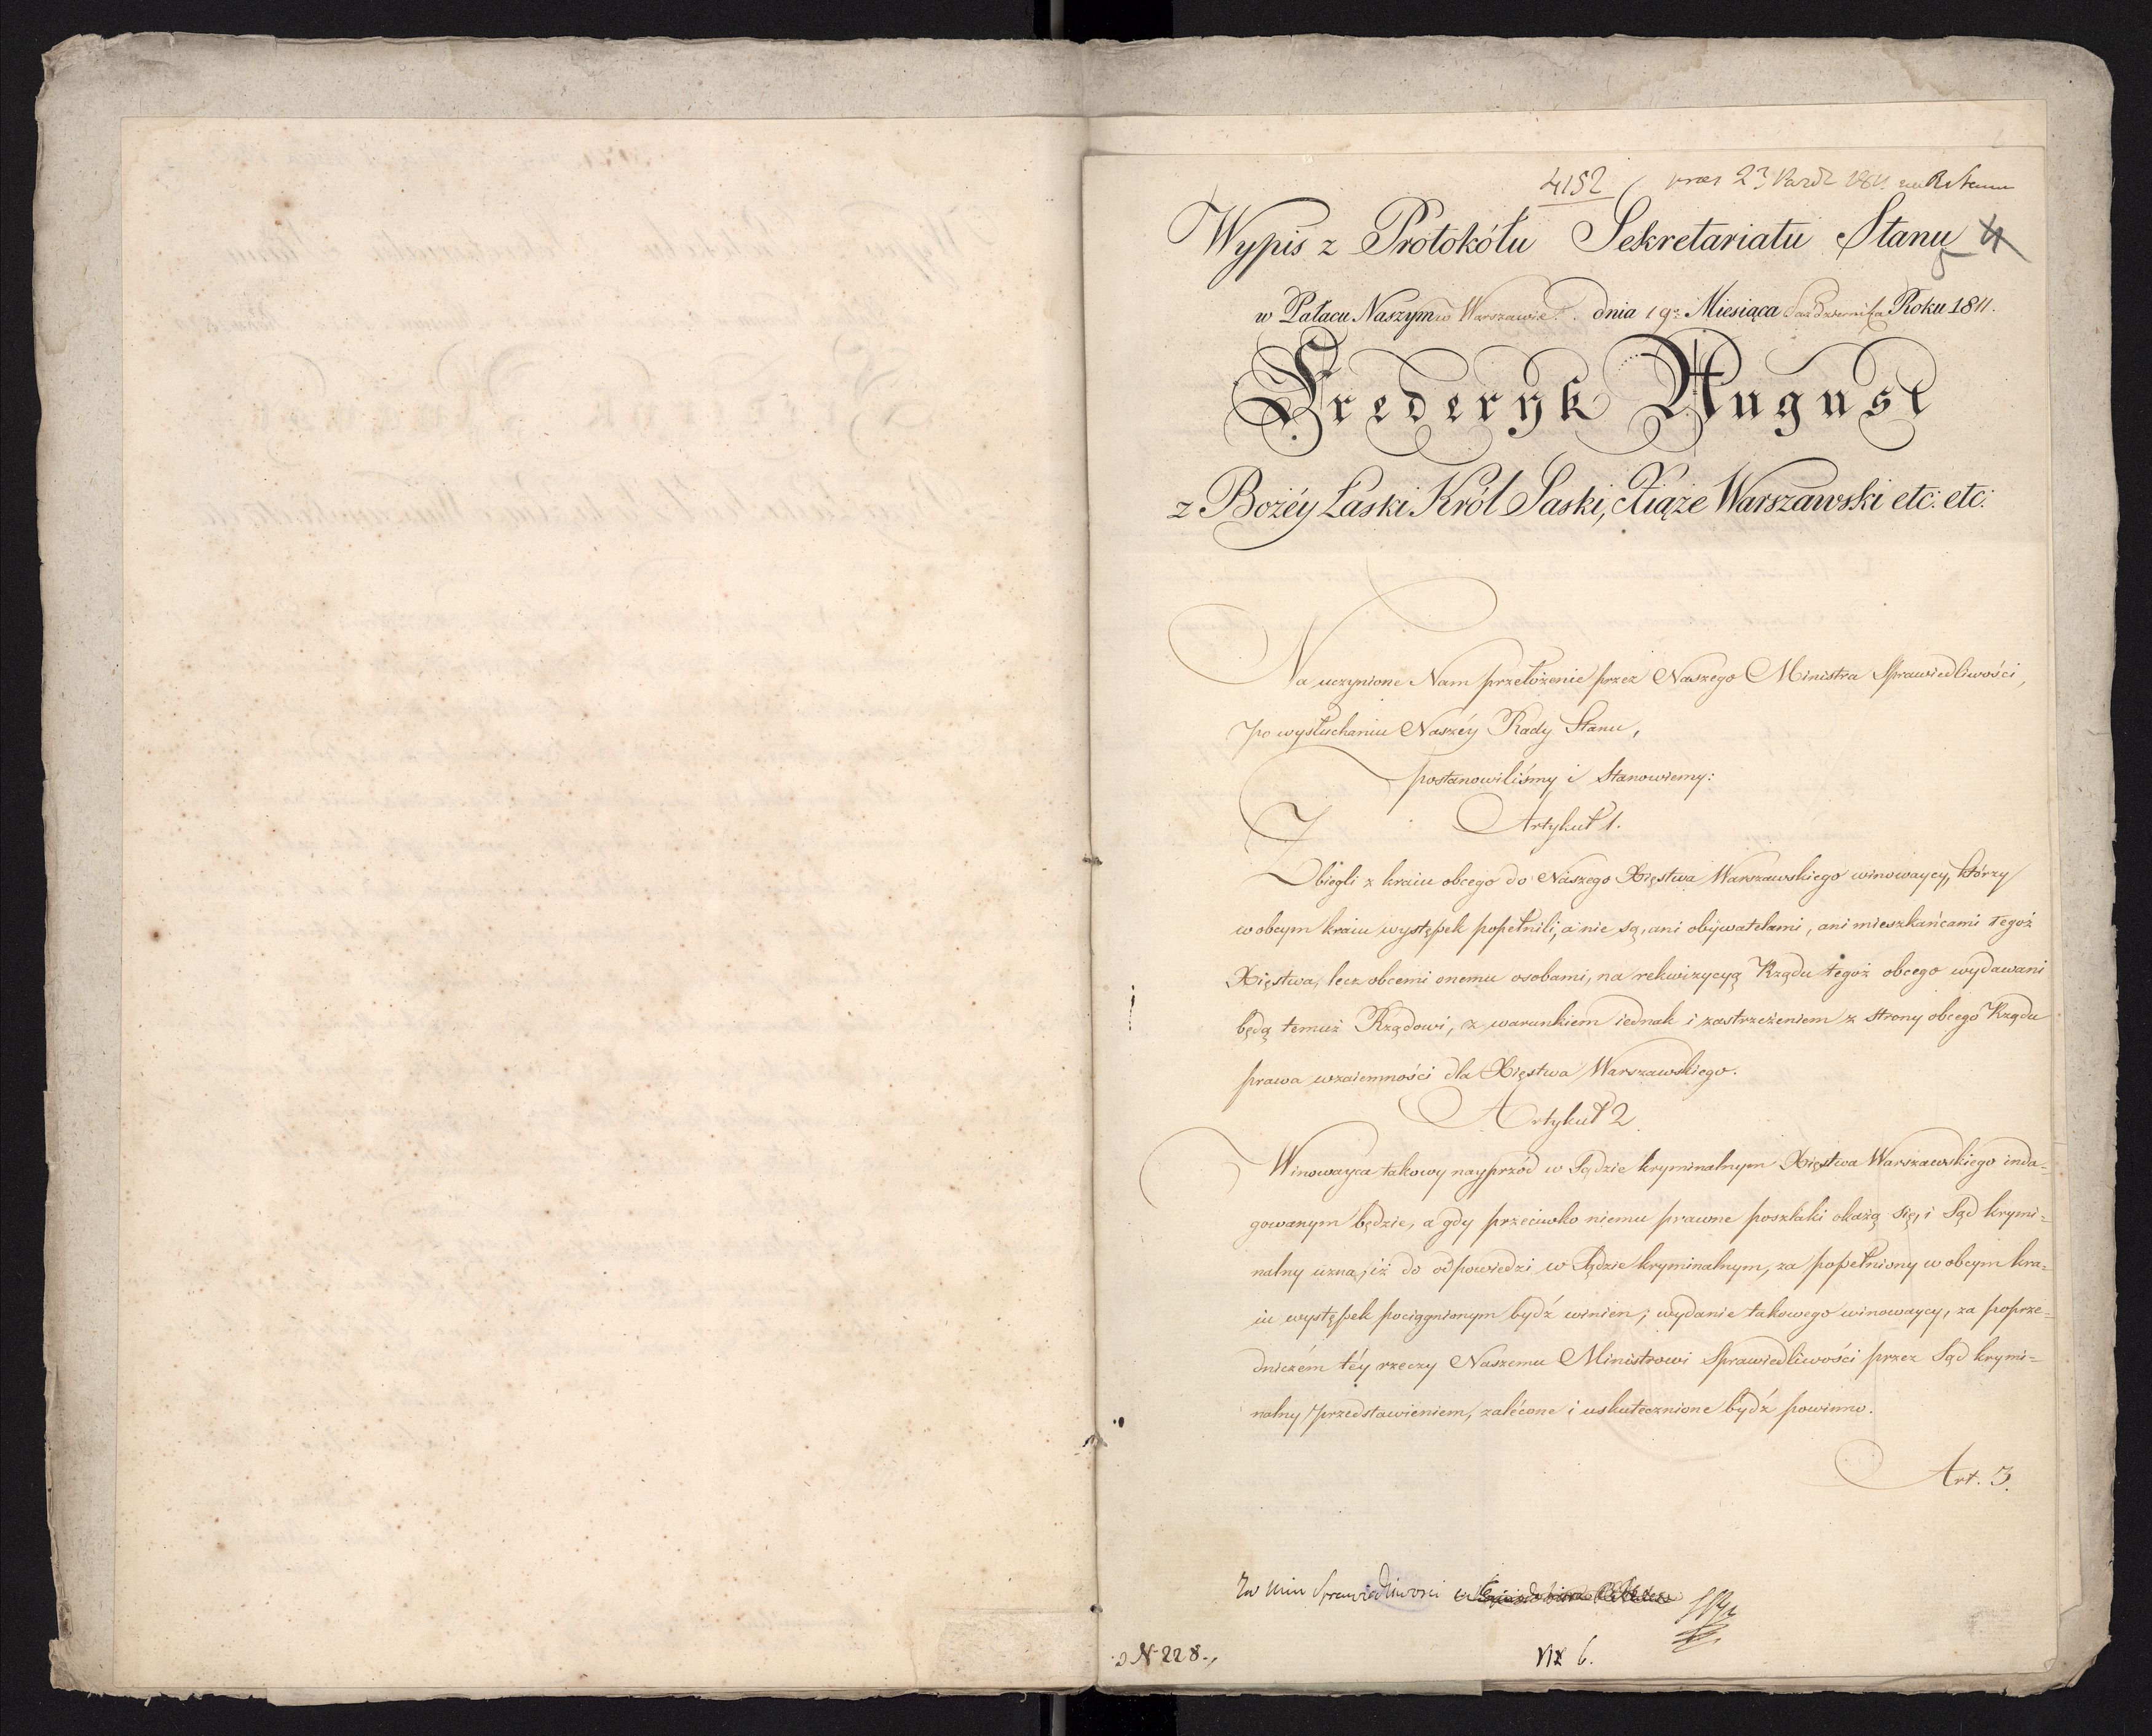 4152
23 Paźd 1811
Wypis z Protokółu Sekretariatu Stanu
w Pałacu Naszym w Warszawie dnia 19º Miesiąca Października Roku 1811.
Frederyk August
z Bożéy Łaski Król Saski, Xiąże Warszawski etc: etc:
Na uczynione Nam przełożenie przez Naszego Ministra Sprawiedliwości,
po wysłuchaniu Naszéy Rady Stanu,
postanowiliśmy i Stanowiemy:
Artykuł 1.
Zbiegli z kraiu obcego do Naszego Xięstwa Warszawskiego winowaycy, którzy
w obcym kraiu występek popełnili, a nie są, ani obywatelami, ani mieszkańcami tegoż
Xięstwa, lecz obcemi onemu osobami, na rekwizycyą Rządu tegoż obcego wydawani
będą temuż Rządowi, z warunkiem iednak i zastrzeżeniem z strony obcego Rządu
prawa wzaiemności dla Xięstwa Warszawskiego.
Artykuł 2
Winowayca takowy nayprzód w Sądzie kryminalnym Xięstwa Warszawskiego inda=
gowanym będzie, a gdy przeciwko niemu prawne poszlaki okażą się, i Sąd krymi=
nalny uzna, iż do odpowiedzi w Sądzie kryminalnym, za popełniony w obcym kra=
iu występek pociągnionym bydź winien; wydanie takowego winowaycy, za poprze=
dniczém téy rzeczy Naszemu Ministrowi Sprawiedliwości przez Sąd krymi=
nalny przedstawieniem, zalécone i uskutecznione bydź powinno.
Art. 3.
Sprawiedliwości
N 228.
VIX 6.